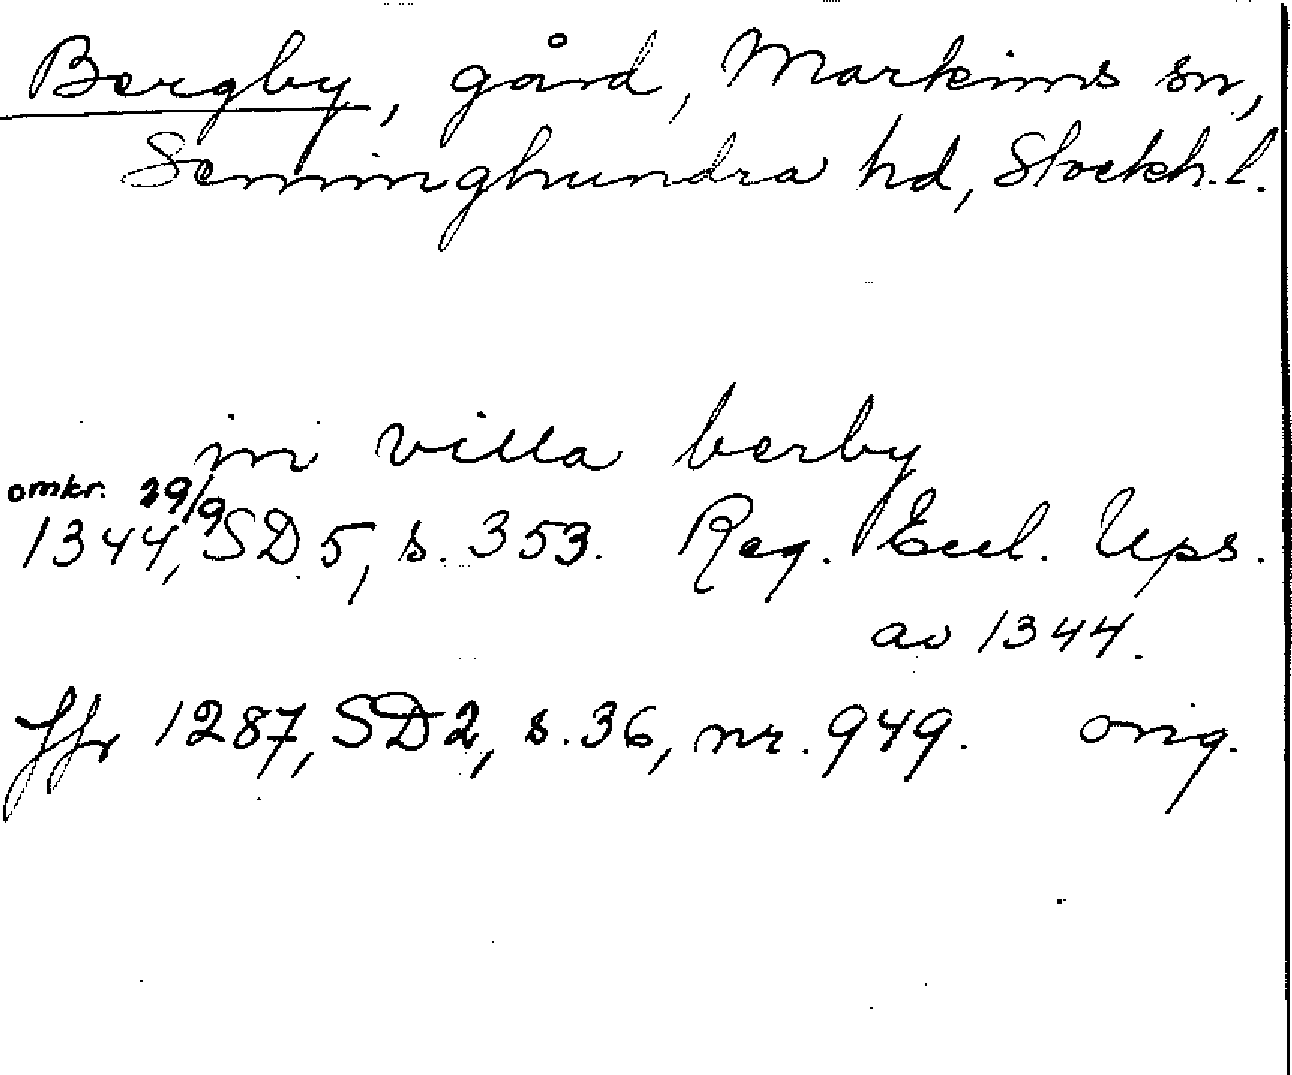 Bergby, gård, Markims sn,
Seminghundra hd, Stockh. l.
in villa berby
omkr. 29/9
1344, SD 5, s. 353. Reg. Eccl. Ups.
av 1344.
Jfr 1287, SD 2, s. 36, nr. 949. orig.